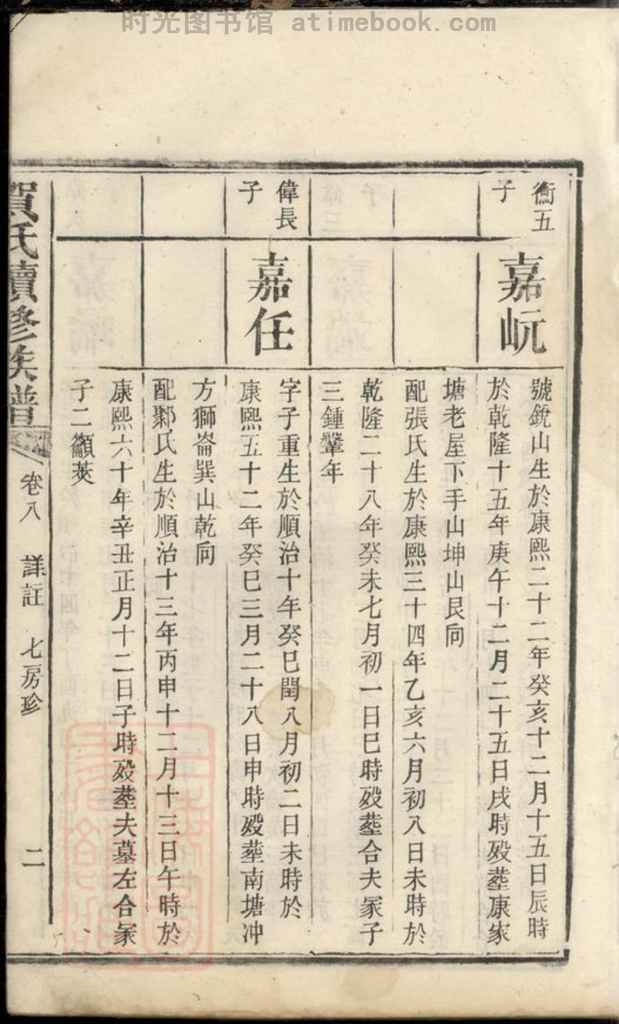 时光图书馆 atimebook.com
衡五
子
嘉岏
號鋭山生於康熙二十二年癸亥十二月十五日辰時
於乾隆十五年庚午十二月二十五日戌時殁塟康家
塘老屋下手山坤山艮向
配張氏生於康熙三十四年乙亥六月初八日未時於
乾隆二十八年癸未七月初一日巳時殁塟合夫冢子
三鍾鞶年
偉長
子
嘉任
字子重生於順治十年癸巳閏八月初二日未時於
康熙五十二年癸巳三月二十八日申時殁塟南塘冲
方獅崙巽山乾向
配鄴氏生於順治十三年丙申十二月十三日午時於
康熙六十年辛丑正月十二日子時殁塟夫墓左合冢
子二籲莢
賀氏續修族譜
卷八 詳註 七房珍
二